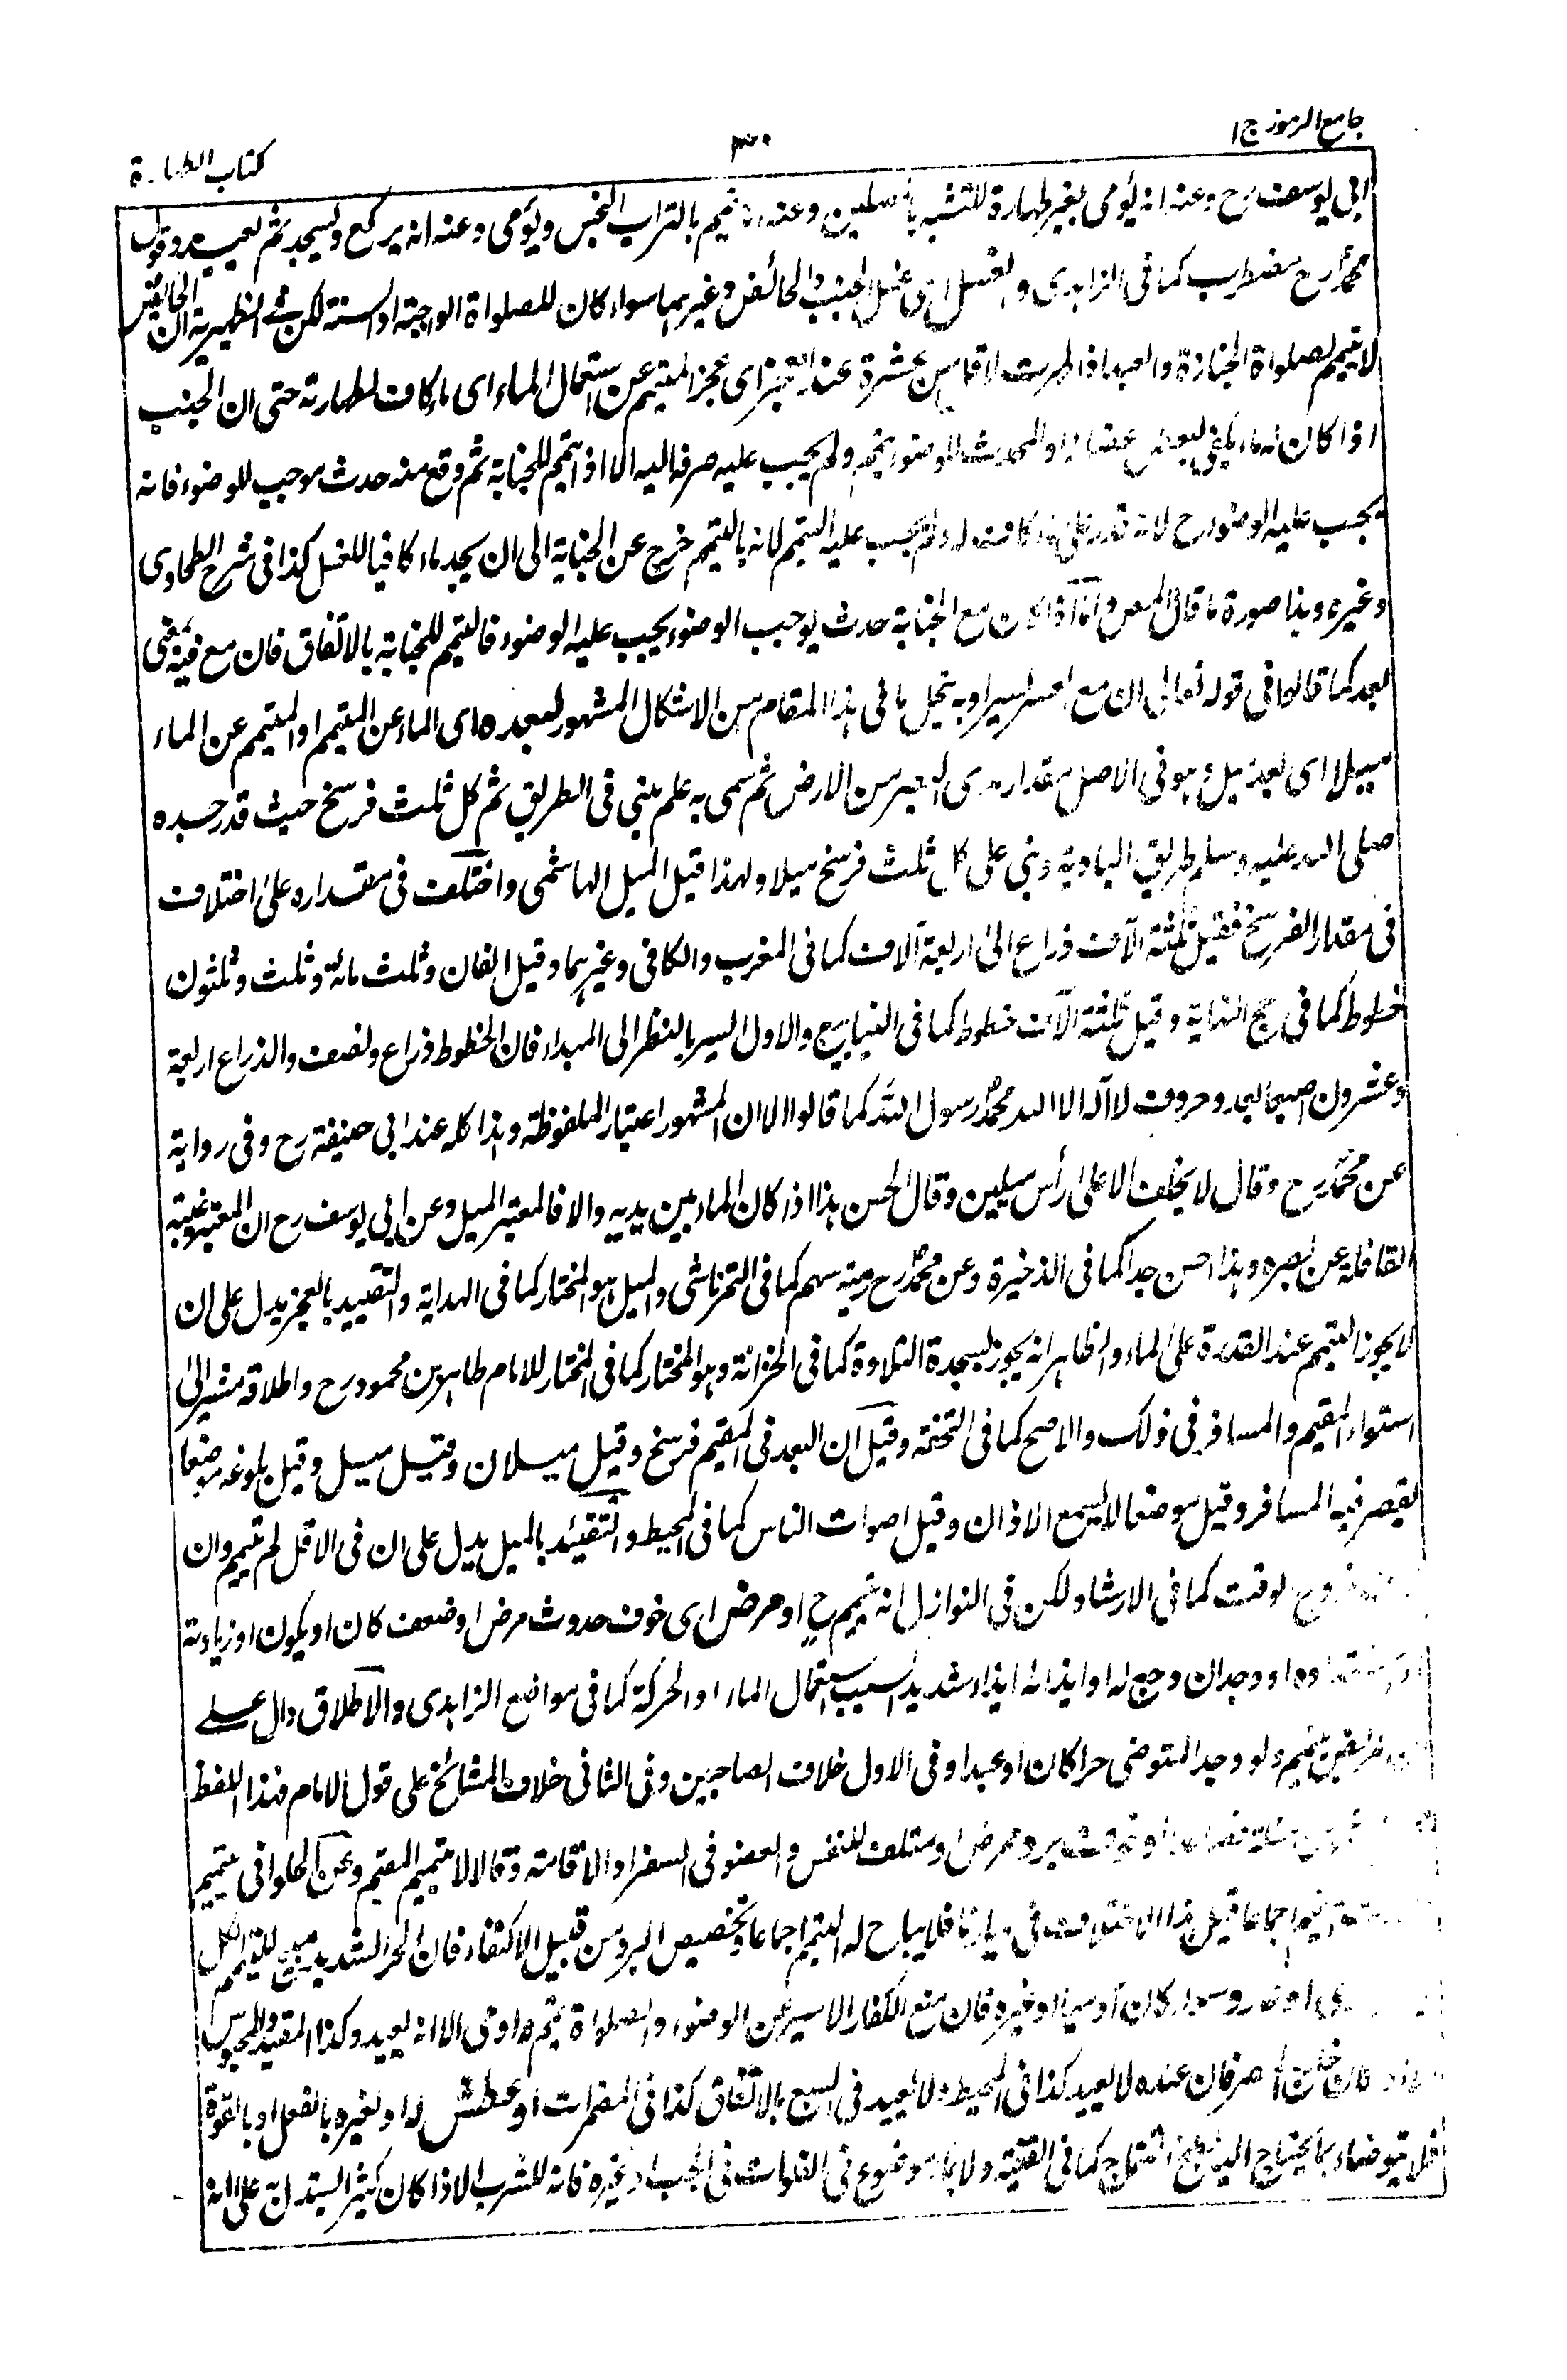 جامع الرموز ج ١
٣٠
كتاب الطهارة
ابى يوسف رح وعنه انه يؤمى بغير طهارة للتشبه بالمصلين وعنه انه يتيمم بالتراب النجس ويؤمى وعنه انه يركع ويسجد ثم يعيد وقول
محمد رح مضطرب كما فى الزاهدى والغسل اى غسل الجنب والحائض وغيرهما سواء كان للصلواة الواجبة او السنة لكن فى الظهيرية ان الحائض
لا تتيمم لصلواة الجنازة والعيد اذا طهرت لاقل من عشرة عند العجز اى عجز المتيمم عن استعمال الماء اى ماء كاف لطهارته حتى ان الجنب
اذا كان له ماء يكفى لبعض اعضائه او المحدث للوضوء يتيمم ولم يجب عليه صرفه اليه الا اذا تيمم للجنابة ثم وقع منه حدث موجب للوضوء فانه
يجب عليه الوضوء ح لانه قدر على ماء كاف له ولم يجب عليه التيمم لانه بالتيمم خرج عن الجنابة الى ان يجد ماء كافيا للغسل كذا فى شرح الطحاوى
وغيره وهذا صورة ما قال المص واما اذا كان مع الجنابة حدث يوجب الوضوء يجب عليه الوضوء فالتيمم للجنابة بالاتفاق فان مع فيه بمعنى
بعد كما قالوا فى قوله تعالى ان مع العسر يسرا وبه ينحل ما فى هذا المقام من الاشكال المشهور لبعده اى الماء عن التيمم او المتيمم عن الماء
ميلا اى بعد ميل وهو فى الاصل مقدار مدى البصر من الارض ثم سمى به علم يبنى فى الطريق ثم كل ثلث فرسخ حيث قدر جده
صلى الله عليه وسلم طريق البادية وبنى على كل ثلث فرسخ ميلا ولهذا قيل الميل الهاشمى واختلف فى مقداره على اختلاف
فى مقدار الفرسخ فقيل ثلثة آلاف ذراع الى اربعة آلاف كما فى المغرب والكافى وغيرهما وقيل الفان وثلث مائة وثلث وثلثون
خطوط كما فى حج النهاية وقيل ثلثة آلاف خطوط كما فى الينابيع والاول ايسر بالنظر الى المبداء فان الخطوط ذراع ونصف والذراع اربعة
وعشرون اصبعا بعدد حروف لا اله الا الله محمد رسول الله كما قالوا الا ان المشهور اعتبار الملفوظة وهذا كله عند ابى حنيفة رح وفى رواية
عن محمد رح وقال لا يختلف الا على رأس ميلين وقال الحسن هذا اذا كان الماء بين يديه والا فالمعتبر الميل وعن ابى يوسف رح ان المعتبر غيبة
القافلة عن بصره وهذا حسن جدا كما فى الذخيرة وعن محمد رح رمية سهم كما فى التمرتاشى والميل هو المختار كما فى الهداية والتقييد بالعجز يدل على ان
لا يجوز التيمم عند القدرة على الماء والظاهر انه يجوز لسجدة التلاوة كما فى الخزانة وهو المختار كما فى المختار للامام طاهر بن محمود رح واطلاقه مشير الى
استواء المقيم والمسافر فى ذلك والاصح كما فى التحفة وقيل ان البعد فى المقيم فرسخ وقيل ميلان وقيل ميل وقيل بلوغه موضعا
يقصر فيه المسافر وقيل موضعا لا يسمع الاذان وقيل اصوات الناس كما فى المحيط والتقييد بالميل يدل على ان فى الاقل لم يتيمم وان
خروج الوقت كما فى الارشاد ولكن فى النوازل انه يتيمم ح او مرض اى خوف حدوث مرض او ضعف كان او يكون او زيادته
او وجدان وجع له او ايذائه ايذاء شديدا بسبب استعمال الماء او الحركة كما فى مواضع الزاهدى والاطلاق دال على
المريض يتيمم ولو وجد المتوضى حرا كان او عبدا وفى الاول خلاف الصاحبين وفى الثانى خلاف المشائخ على قول الامام فهذا اللفظ
او خوف برد ممرض او متلف للنفس والعضو فى السفر او الاقامة وقالا لا يتيمم المقيم وعن الحلوانى يتيمم
اجماعا قيل هذا الاختلاف فى ديارنا فلا يباح له التيمم اجماعا وتخصيص البرد من قبيل الاكتفاء فان الحر الشديد مبيح للتيمم
او عدو سواء كان آدميا او غيره فان منع الكفار الاسير عن الوضوء والصلواة يتيمم واومى الا انه يعيد وكذا المقيد والمحبوس
عنده لا يعيد كذا فى المحيط ولا يعيد فى السبع بالاتفاق كذا فى المضمرات او عطش له او لغيره بالفعل او بالقوة
فلا يتوضاء بما يحتاج اليه كما فى القنية ولا بماء موضوع فى الفلوات فى الجب وغيره فانه للشرب الا اذا كان كثيرا يستدل به على انه